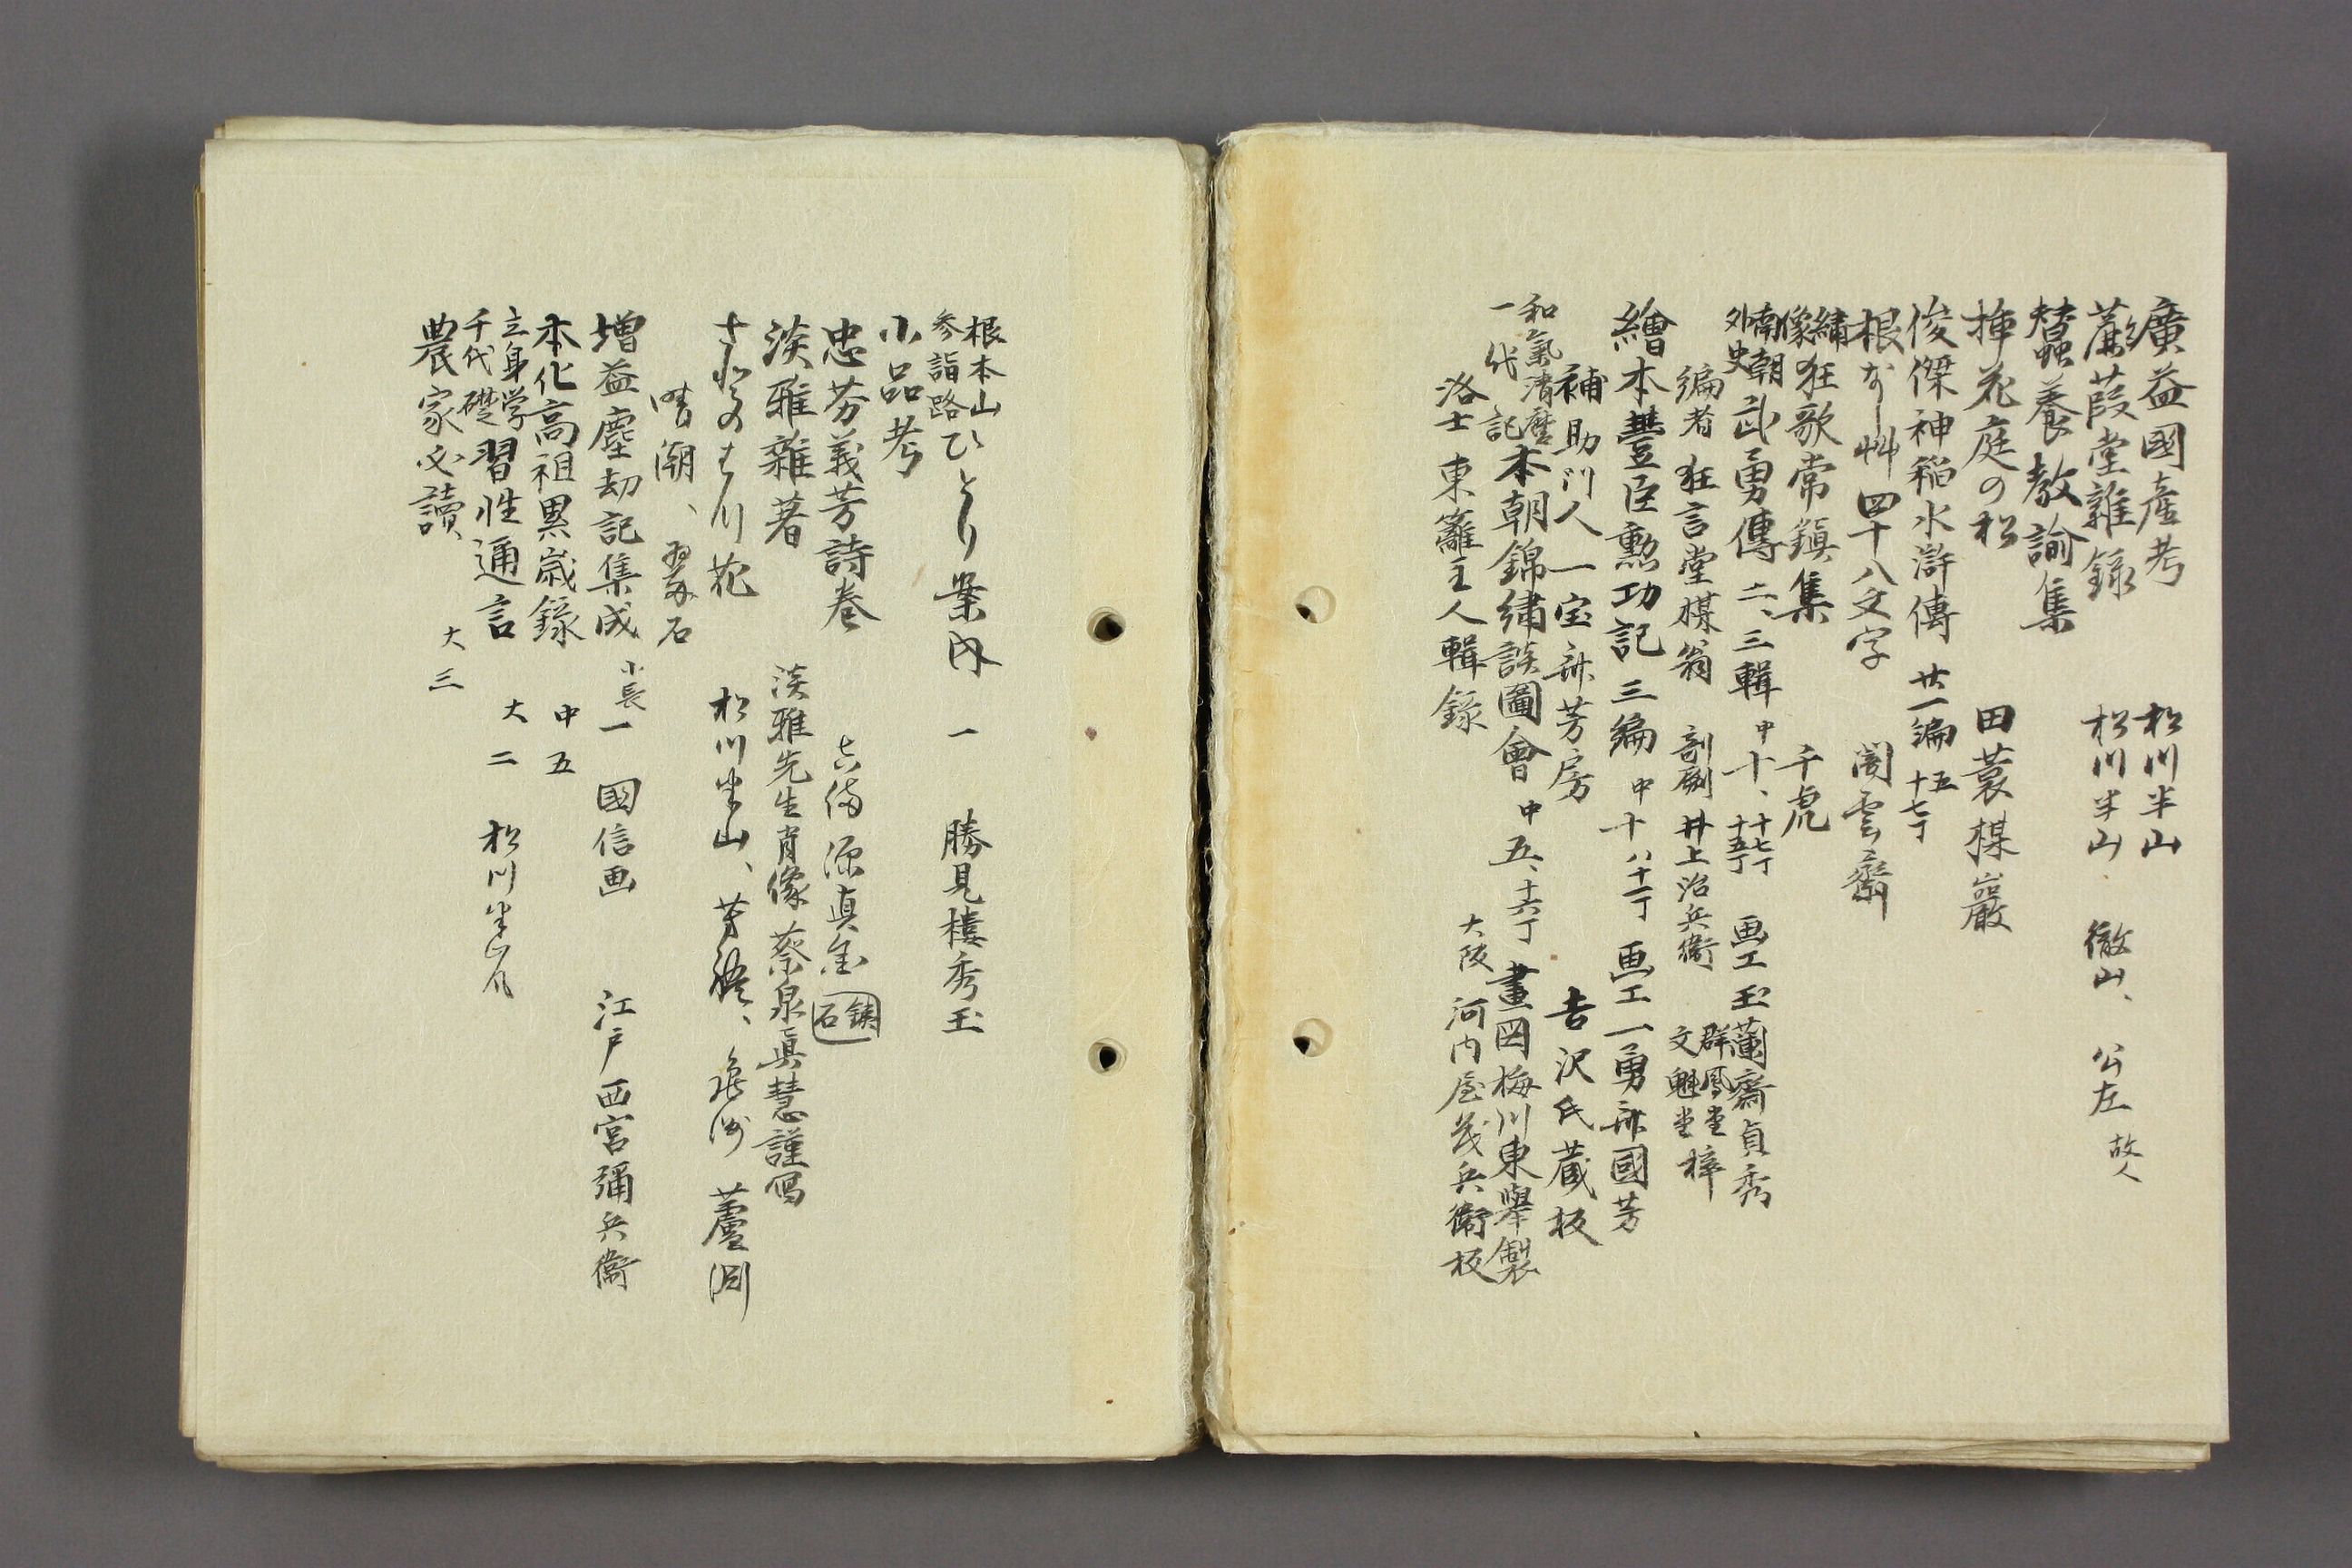 廣益國産考 松川半山
蒹葭堂雜録 松川半山、徹山、公左 故人
蠶養教諭集
挿花庭の松 田蓑楳巖
俊傑神稲水滸傳 廿一編 十五 十七丁
根なし艸四十八文字 閑雲齋
繍像狂歌常鎮集 千虎
南朝外史 武勇傳 二、三輯 中十、十七丁 十五丁 画工 玉蘭齋貞秀
編者 狂言堂楳翁 剞劂 井上治兵衛 群鳳堂 文魁堂 梓
繪本豊臣勲功記 三編 中十 八十一丁 画工 一勇斎國芳
補助門人 一宝斎芳房 吉沢氏蔵板
和氣清麿一代記 本朝錦繍談圖會 中五、十六丁 畫図 梅川東擧製
洛士 東籬主人輯録 大阪 河内屋茂兵衛板
根本山参詣路 ひとり案内 一 勝見樓秀玉
小品考
忠芬義芳詩巻 源真
淡雅雜著 淡雅先生肖像 蔡泉真慧謹写
川花 松川半山、芳 、 蘆渕
晴潮、翠石
増益塵劫記集成 小長一 國信画 江戸 西宮彌兵衛
本化高祖累歳録 中五
立身学千代礎 習性通言 大二 松川半山
農家必讀 大三